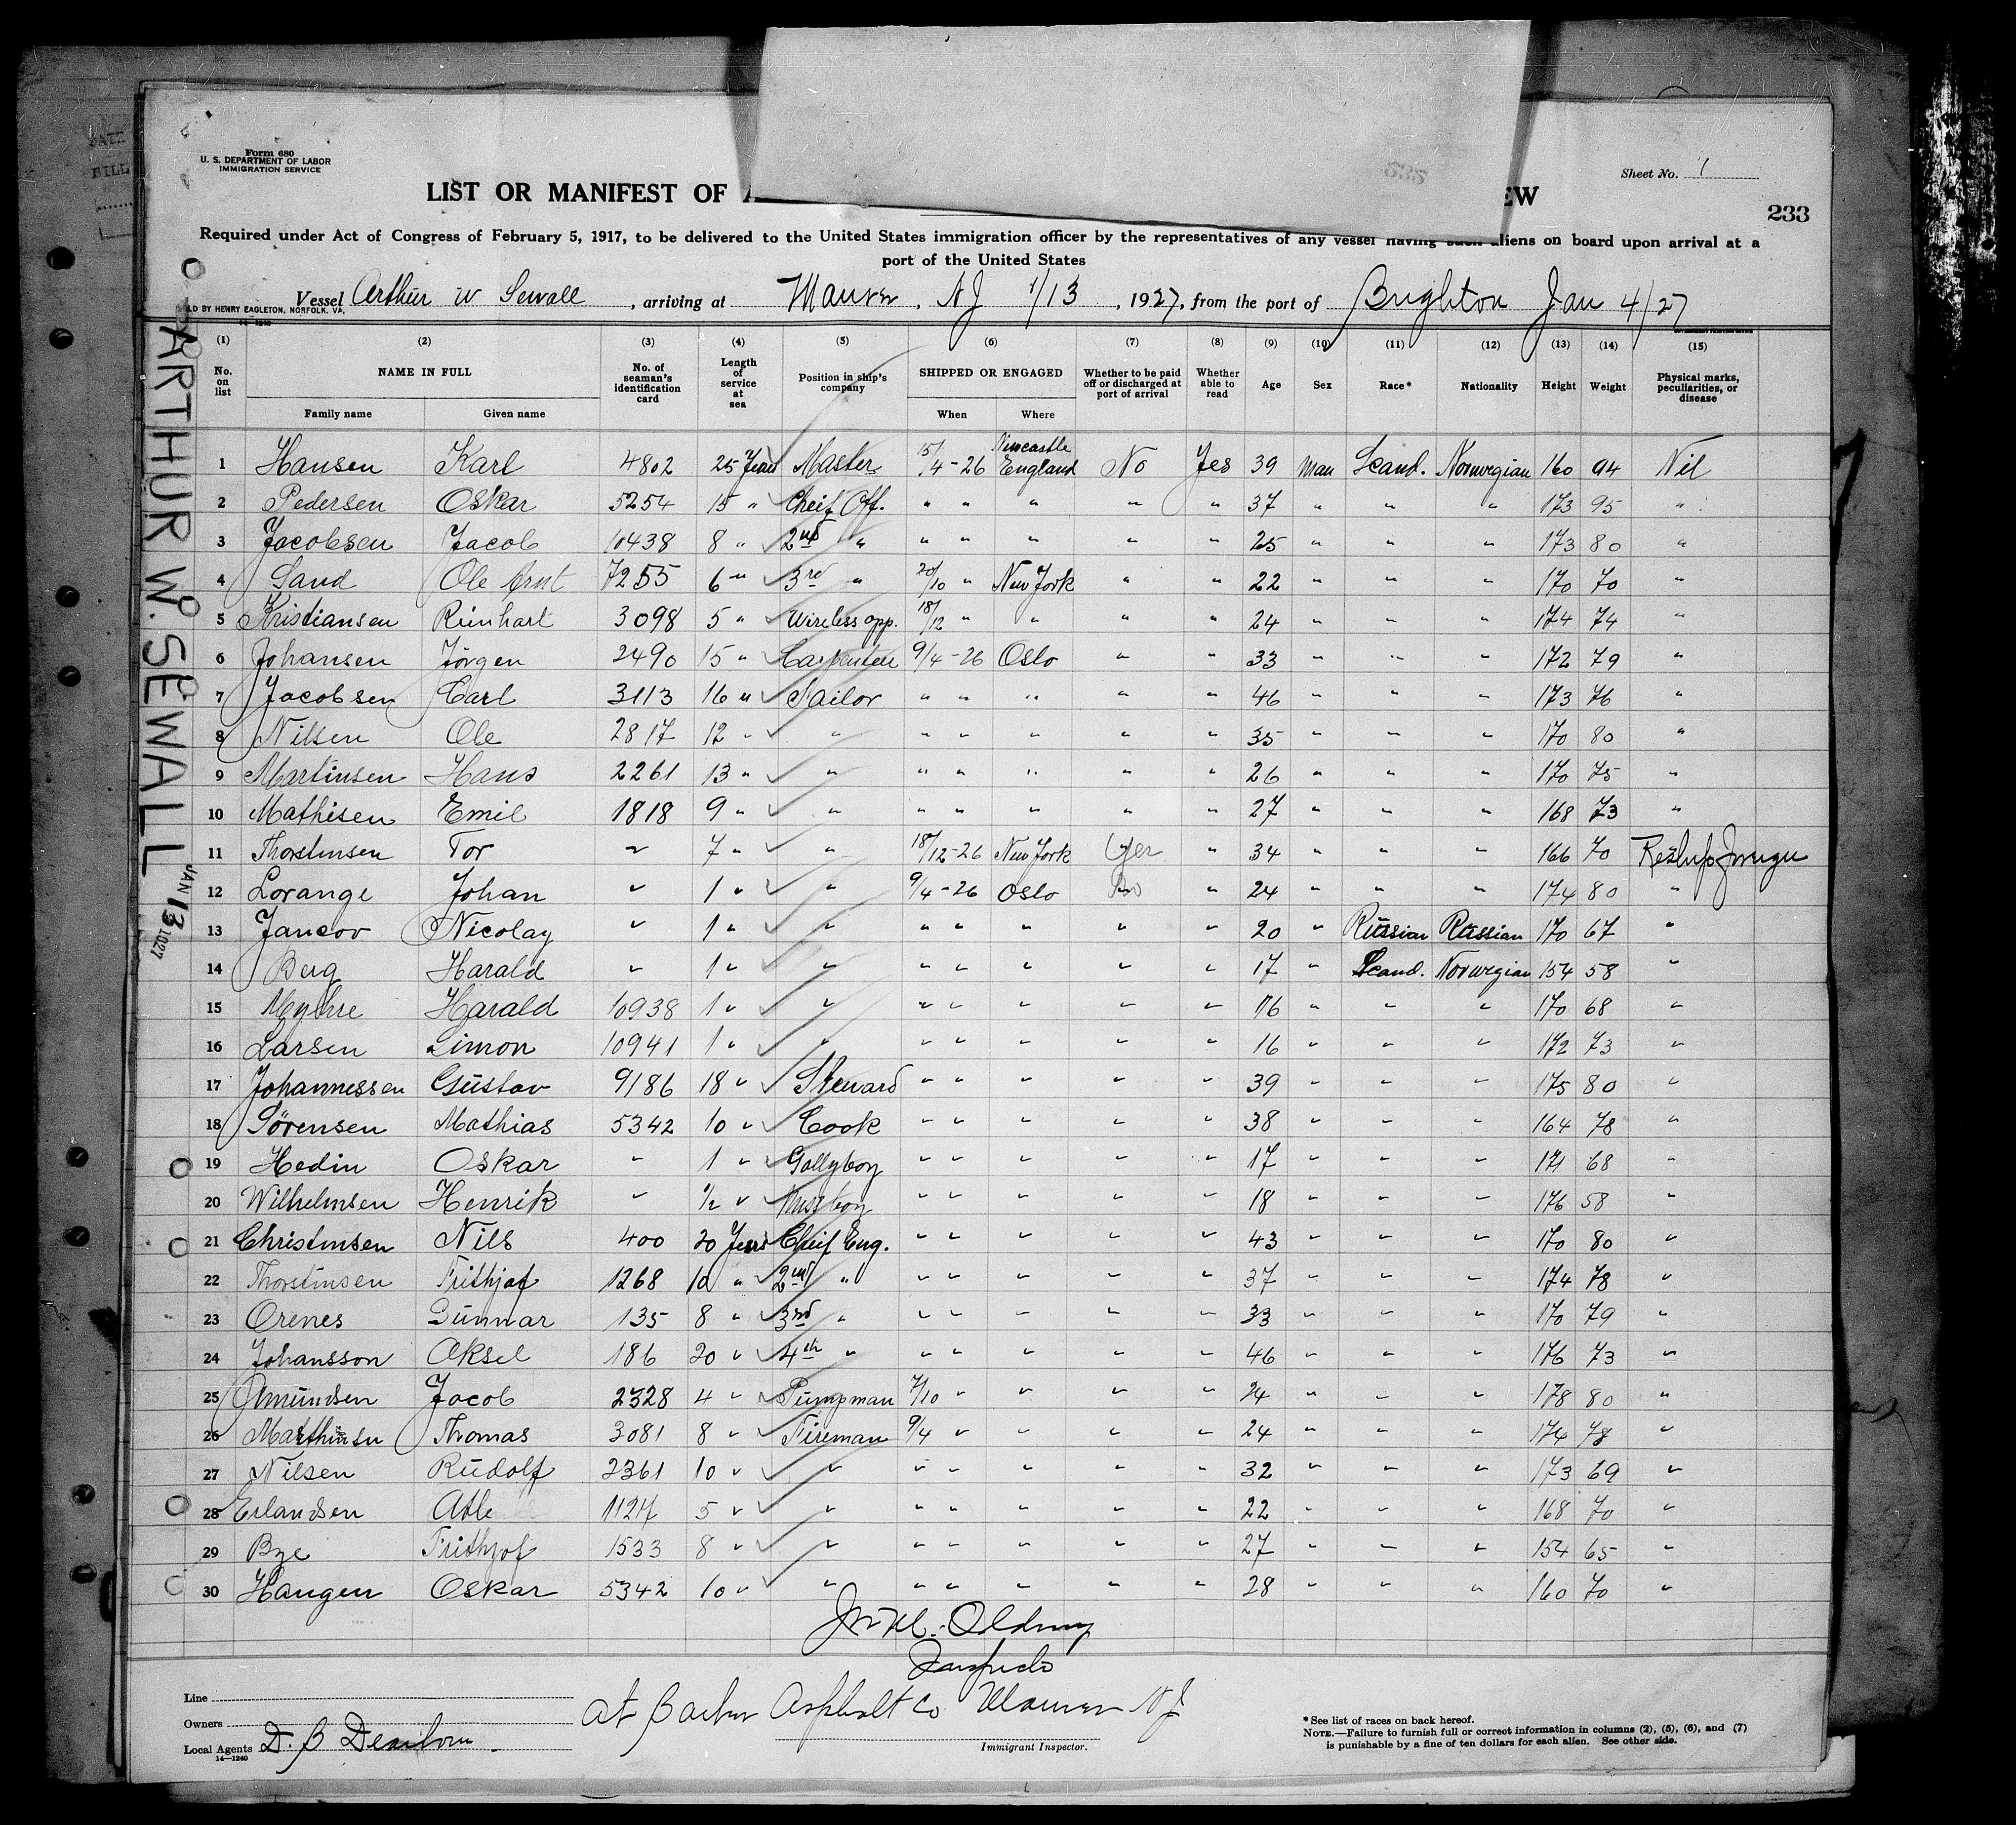 Form 680
U. S. DEPARTMENT OF LABOR
IMMIGRATION SERVICE
Sheet No. 1
LIST OR MANIFEST OF
EW
233
Required under Act of Congress of February 5, 1917, to be delivered to the United States immigration officer by the representatives of any vessel having such aliens on board upon arrival at a
port of the United States
Vessel Arthur W Sewall, arriving at Maurer, NJ 1/13, 1927, from the port of Brighton Jan 4/27
LD BY HENRY EAGLETON, NORFOLK, VA.
ARTHUR W. SEWALL
JAN 13 1927
(1) (2) (3) (4) (5) (6) (7) (8) (9) (10) (11) (12) (13) (14) (15)
No. on list NAME IN FULL No. of seaman's identification card Length of service at sea Position in ship's company SHIPPED OR ENGAGED Whether to be paid off or discharged at port of arrival Whether able to read Age Sex Race* Nationality Height Weight Physical marks, peculiarities, or disease
Family name Given name When Where
1 Hansen Karl 4802 25 Years Master 15/4-26 Newcastle England No Yes 39 Man Scand. Norwegian 160 94 Nil
2 Pedersen Oskar 5254 15 " Cheif Off. " " " " " 37 " " " 173 95 "
3 Jacobsen Jacob 10438 8 " 2nd " " " " " " 25 " " " 173 80 "
4 Sand Ole Arnt 7255 6 " 3rd " 20/10 " New York " " 22 " " " 170 70 "
5 Kristiansen Reinhart 3098 5 " Wireless opp. 18/12 " " " " 24 " " " 174 74 "
6 Johansen Jörgen 2490 15 " Carpenter 9/4-26 Oslo " " 33 " " " 172 79 "
7 Jacobsen Carl 3113 16 " Sailor " " " " " 46 " " " 173 76 "
8 Nilsen Ole 2817 12 " " " " " " " 35 " " " 170 80 "
9 Martinsen Hans 2261 13 " " " " " " " 26 " " " 170 75 "
10 Mathisen Emil 1818 9 " " " " " " " 27 " " " 168 73 "
11 Thorstensen Tor " 7 " " 18/12-26 New York Yes " 34 " " " 166 70
12 Lorange Johan " 1 " " 9/4-26 Oslo No " 24 " " " 174 80 "
13 Jancov Nicolay " 1 " " " " " " " 20 " Russian Russian 170 67 "
14 Berg Harald " 1 " " " " " " " 17 " Scand. Norwegian 154 58 "
15 Myhre Harald 10938 1 " " " " " " " 16 " " " 170 68 "
16 Larsen Simon 10941 1 " " " " " " " 16 " " " 172 73 "
17 Johannessen Gustav 9186 18 " Steward " " " " " 39 " " " 175 80 "
18 Sörensen Mathias 5342 10 " Cook " " " " " 38 " " " 164 78 "
19 Hedin Oskar " 1 " Gallyboy " " " " " 17 " " " 171 68 "
20 Wilhelmsen Henrik " 1/2 " Messboy " " " " " 18 " " " 176 58 "
21 Christensen Nils 400 20 Years Cheif Eng. " " " " " 43 " " " 170 80 "
22 Thorstensen Frithjof 1268 10 " 2nd " " " " " " 37 " " " 174 78 "
23 Orenes Gunnar 135 8 " 3rd " " " " " " 33 " " " 170 79 "
24 Johansson Aksel 186 20 " 4th " " " " " " 46 " " " 176 73 "
25 Amundsen Jacob 2328 4 " Pumpman 7/10 " " " " 24 " " " 178 80 "
26 Marthinsen Thomas 3081 8 " Fireman 9/4 " " " " 24 " " " 174 78 "
27 Nilsen Rudolf 2361 10 " " " " " " " 32 " " " 173 69 "
28 Erlandsen Atle 1127 5 " " " " " " " 22 " " " 168 70 "
29 Bye Frithjof 1533 8 " " " " " " " 27 " " " 154 65 "
30 Haugen Oskar 5342 10 " " " " " " " 28 " " " 160 70 "
Line
Owners
Local Agents D. B Dearborn
14—1240
at Barber Asphalt Co Maurer NJ
Immigrant Inspector.
* See list of races on back hereof.
NOTE.—Failure to furnish full or correct information in columns (2), (5), (6), and (7)
is punishable by a fine of ten dollars for each alien. See other side.